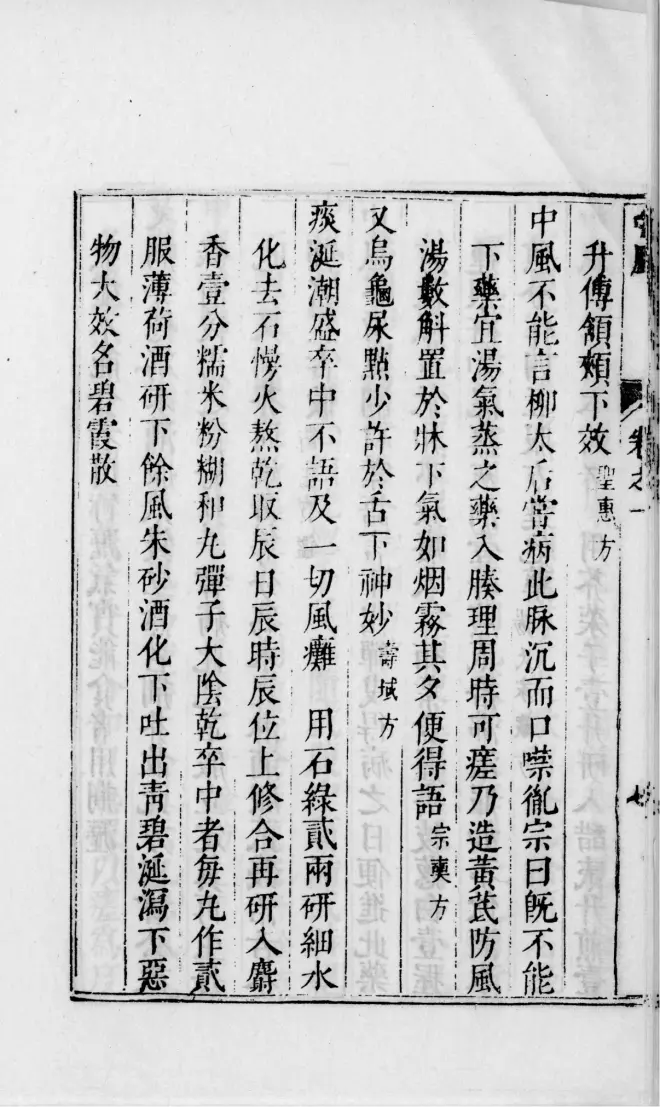 中風
卷之一
七
升傅頷頰下效 聖惠方
中風不能言柳太后嘗病此脉沉而口噤胤宗曰旣不能
下藥宜湯氣蒸之藥入腠理周時可瘥乃造黃芪防風
湯數斛置於牀下氣如烟霧其夕便得語 宗奭方
又烏龜尿點少許於舌下神妙 壽域方
痰涎潮盛卒中不語及一切風癱 用石綠貳兩研細水
化去石慢火熬乾取辰日辰時辰位上修合再研入麝
香壹分糯米粉糊和丸彈子大陰乾卒中者每丸作貳
服薄荷酒研下餘風朱砂酒化下吐出靑碧涎瀉下惡
物大效名碧霞散